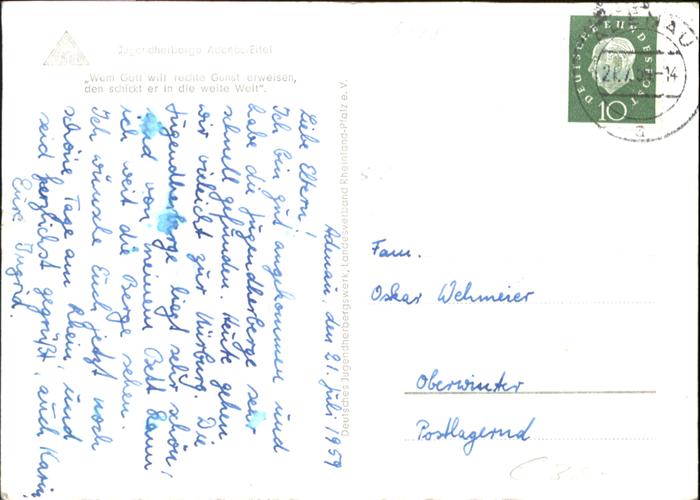 Jugendherberge Adenau/Eifel
„Wem Gott will rechte Gunst erweisen,
den schickt er in die weite Welt".
Adenau, den 21. Juli 1959
Liebe Eltern!
Ich bin gut angekommen und
habe die Jugendherberge sehr
schnell gefunden. Heute gehen
wir vieleicht zur Nürburg. Die
Jugendherberge liegt sehr schön,
und von meinem Bett kann
ich weit die Berge sehen.
Ich wünsche Euch jetzt noch
schöne Tage am Rhein, und
seid herzlichst gegrüßt, auch Karin,
Eure Ingrid.
Deutsches Jugendherbergswerk, Landesverband Rheinland-Pfalz e.V.
DEUTSCHE BUNDESPOST
10
ADENAU
21.7.59-14
a
Fam.
Oskar Wehmeier
Oberwinter
Postlagernd